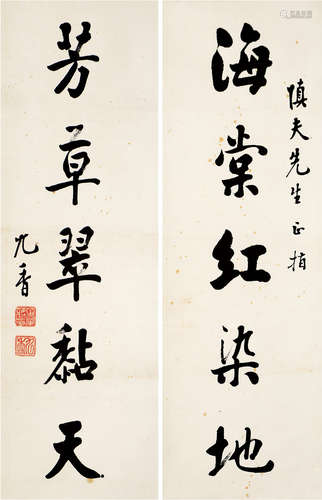 慎夫先生正指
海棠红染地
芳草翠黏天
九香